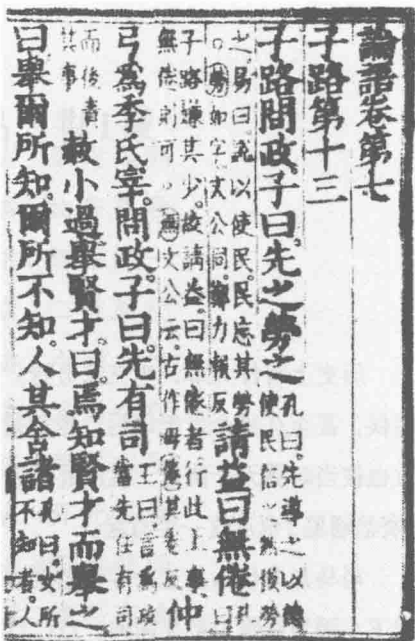 論語卷第七
子路第十三
子路問政子曰先之勞之孔曰先導之以德使民信之然後勞
之易曰說以使民民忘其勞○勞如字文公同力報反請益曰無倦孔曰
子路嫌其少故請益曰無倦者行此上事無倦則可○無文公云古作毋倦其卷反仲
弓為季氏宰問政子曰先有司王曰言為政當先任有司
而後責其事赦小過舉賢才曰焉知賢才而舉之
曰舉爾所知爾所不知人其舍諸孔曰女所不知者人